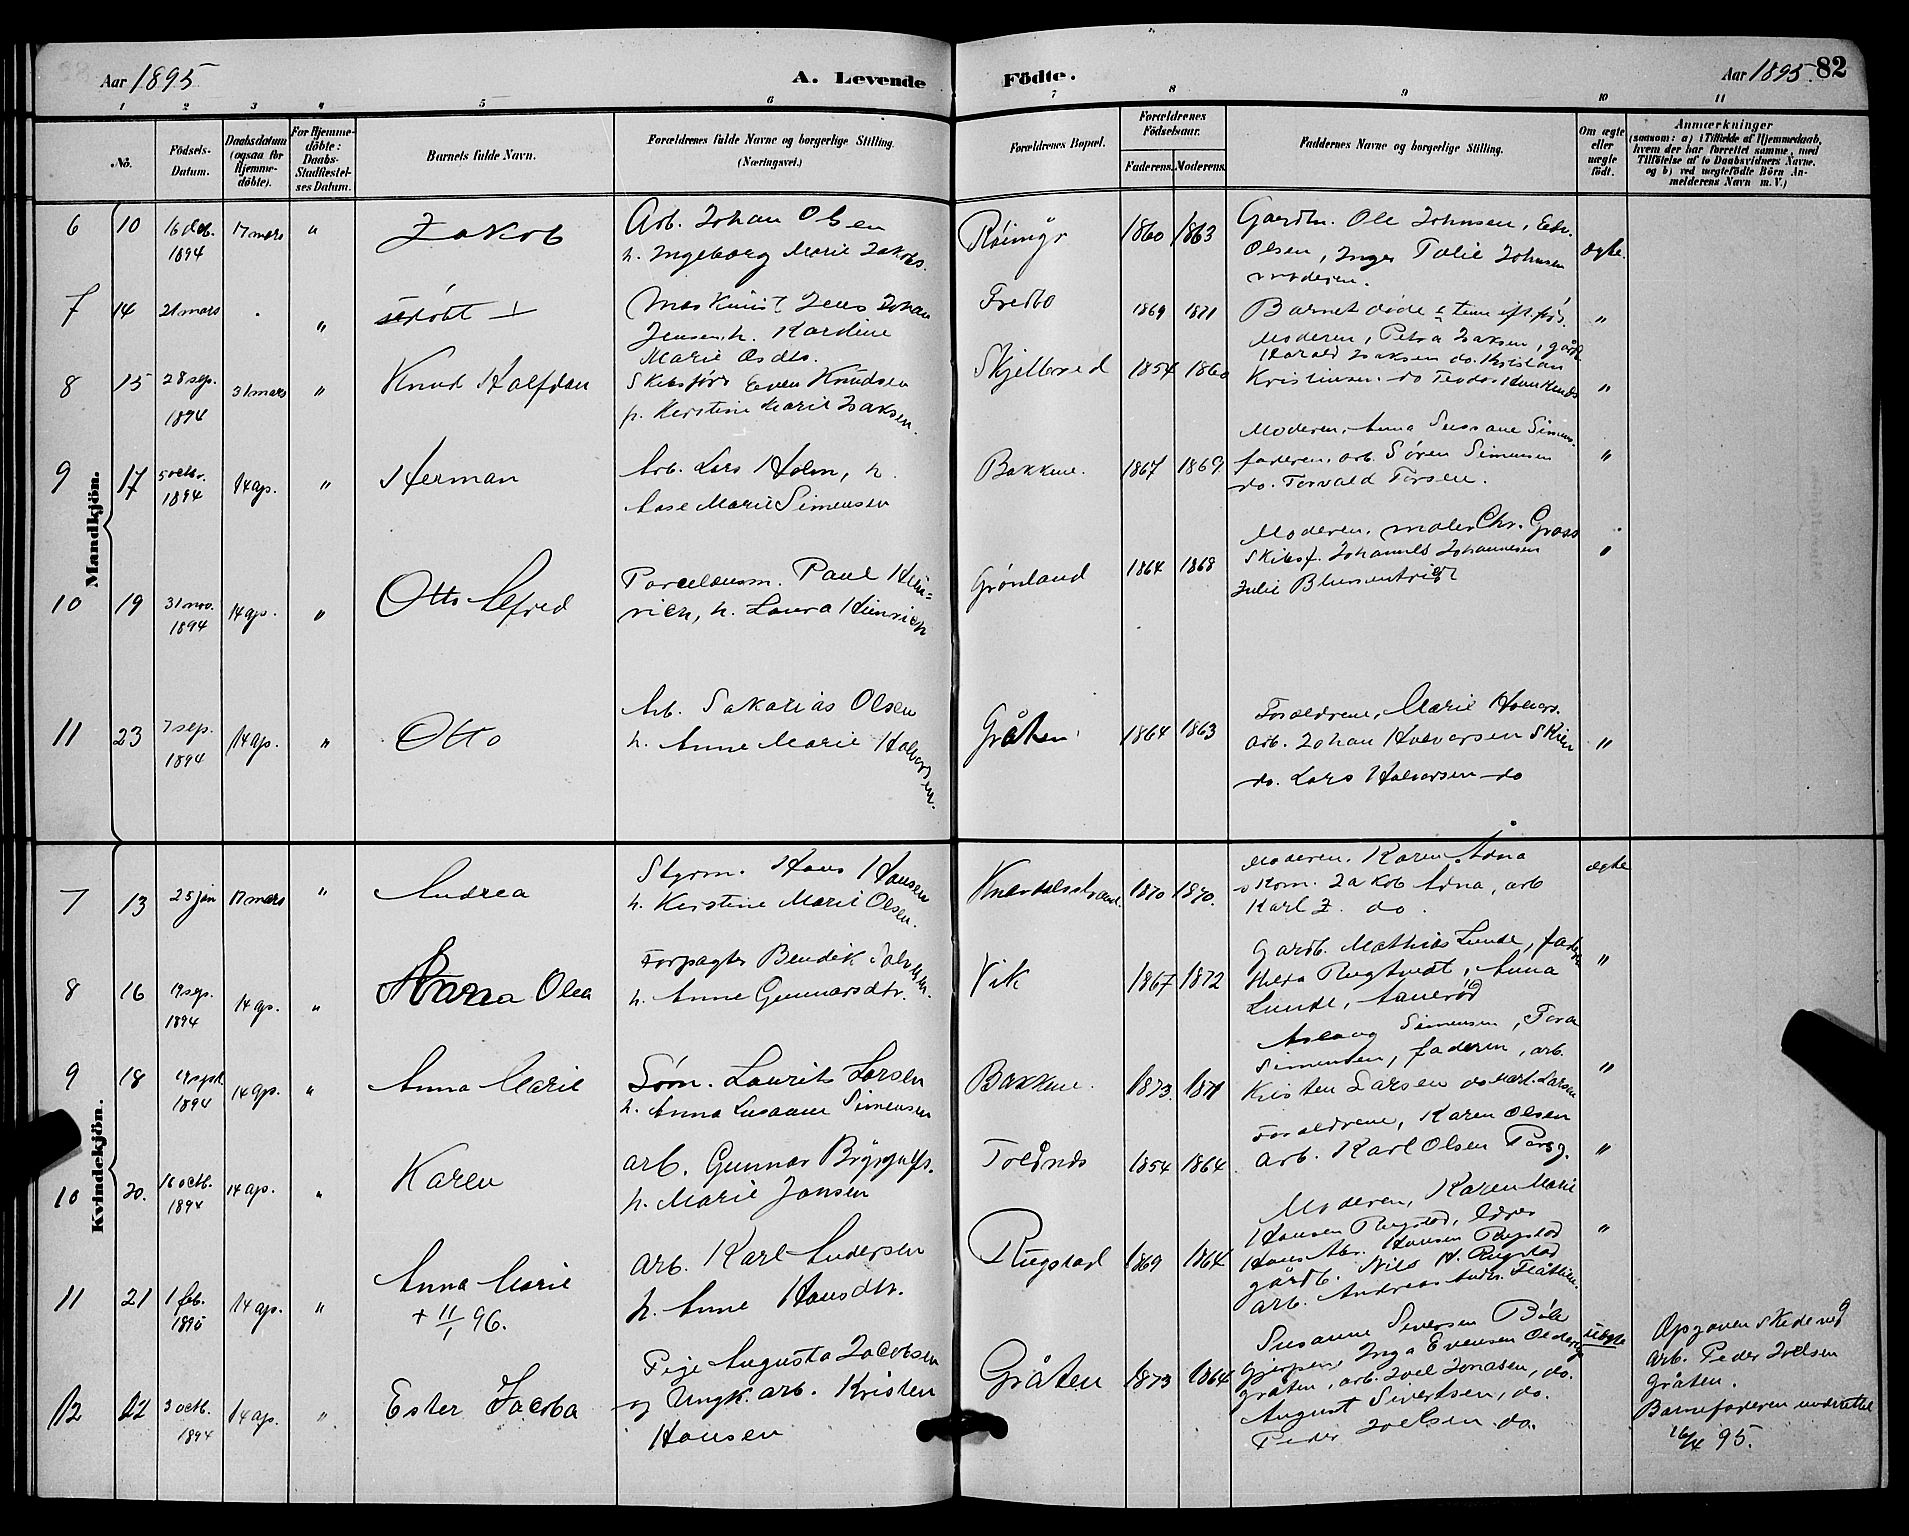 Aar 1895
A. Levende
Födte.
Aar 1895. 82
1 2 3 4 5 6 7 8 9 10 11
No.
Födsels-
Datum.
Daabsdatum
(ogsaa for
Hjemme-
döbte).
For Hjemme-
döbte:
Daabs-
Stadfæstel-
ses Datum.
Barnets fulde Navn.
Forældrenes fulde Navne og borgerlige Stilling.
(Næringsvei.)
Forældrenes Bopæl.
Forældrenes
Födselsaar.
Faderens. Moderens.
Faddernes Navne og borgerlige Stilling.
Om ægte
eller
uægte
födt.
Anmærkninger
(saasom: a) i Tilfælde af Hjemmedaab,
hvem der har forrettet samme, med
Tilföielse af to Daabsvidners Navne.
og b) ved uægtefödte Börn An-
melderens Navn m. V.)
Mandkjön.
6 10 16 dcb. 1894 17 mars " Jakob
Arb. Johan Olsen
h. Ingeborg Marie Jakobs.
1860 1863
Gaardbr. Ole Johnsen, Edv.
Olsen, Inger Talie Johnsen
moderen.
ægte.
7 14 21 mars . "
Maskinist Jens Johan
Jensen, h. Kardine
Marie Osdtr.
Fredbo
1869 1871
Barnet døde ½ time eft. føds.
"
8 15 28 sep. 1894 31 mars " Knud Halfdan
Skibsfører Even Knudsen
h. Kerstine Marie Isaksen.
Skjelbred
1854 1860
Moderen, Petra Isaksen, gårdb
Harald Isaksen do. Kristian
Kristiansen. do
"
9 17 5 octbr. 1894 14 ap. " Herman
Arb. Lars Holm, h.
Aase Marie Simensen
Bakkene.
1867 1869.
Moderen, Anna Susane Simens.
faderen, arb. Søren Simensen
do. Torvald Torsen.
"
10 19 31 nov. 1894 14 ap. " Otto Alfred
Porcelænsm. Paul Hein=
rich, h. Laura Heinrich
Grönland
1864 1868
Moderen, maler Chr. Grass
Skibsf. Johannes Johannesen
Julie
"
11 23 7 sep. 1894 14 ap. " Otto
Arb. Sakarias Olsen
h. Anne Marie Halvorsen.
Gråten
1864 1863
Forældrene, Marie Halvors.
arb. Johan Halvorsen Skien
do. Lars Halvorsen do
"
Kvindekjön.
7 13 25 jan 17 mars " Andrea
Styrm. Hans Hansen
h. Kerstine Marie Olsen.
1870 1870.
Moderen. Karen Ådna
skom. Jakob Ådna, arb
Karl J. do.
ægte
8 16 19 sep. 1894 14 ap. " Olea
Forpagter Bendik
h. Anne Gunnarsdtr.
Vik
1867 1872
Gårdb. Mathias Lunde, faderen
Anna
Lunde,
"
9 18 19 sept 1894 14 ap. " Anna Marie
Søm. Laurits Larsen
h. Anna Susanne Simensen
Bakkene.
1873. 1871
Aslaug Simensen, Tora
Simensen, faderen, arb.
Kristen Larsen do Karl Larsen
"
10 20. 16 octb. 1894 14 ap. " Karen
arb. Gunnar
h. Marie Jansen
1854 1864.
Forældrene, Karen Olsen
arb. Karl Olsen Porsg.
"
11 21 1 feb. 1895 14 ap. " Anna Marie
+ 11/1 96.
arb. Karl Andersen
h. Anne Hansdtr.
Rugstad
1869 1864
Moderen, Karen Marie
Hansen Rugstad,
Hans Hansen Rugstad
gårdb. Nils H. Rugstad
arb. Andreas Andr.
"
12 22 3 octb. 1894 14 ap. " Ester Jacoba
Pige Augusta Jacobsen
og Ungk. arb. Kristen
Hansen
Gråten
1873 1864
Susanne Siversen Böle
Gjerpen, Inga Evensen
Gråten, arb. Joel Jonasen, do.
August Sivertsen, do.
Peder Joelsen do.
uægte
Opgaven skede ved
arb. Peder Joelsen
Gråten.
Barnefaderen underrettet
16/4 95.